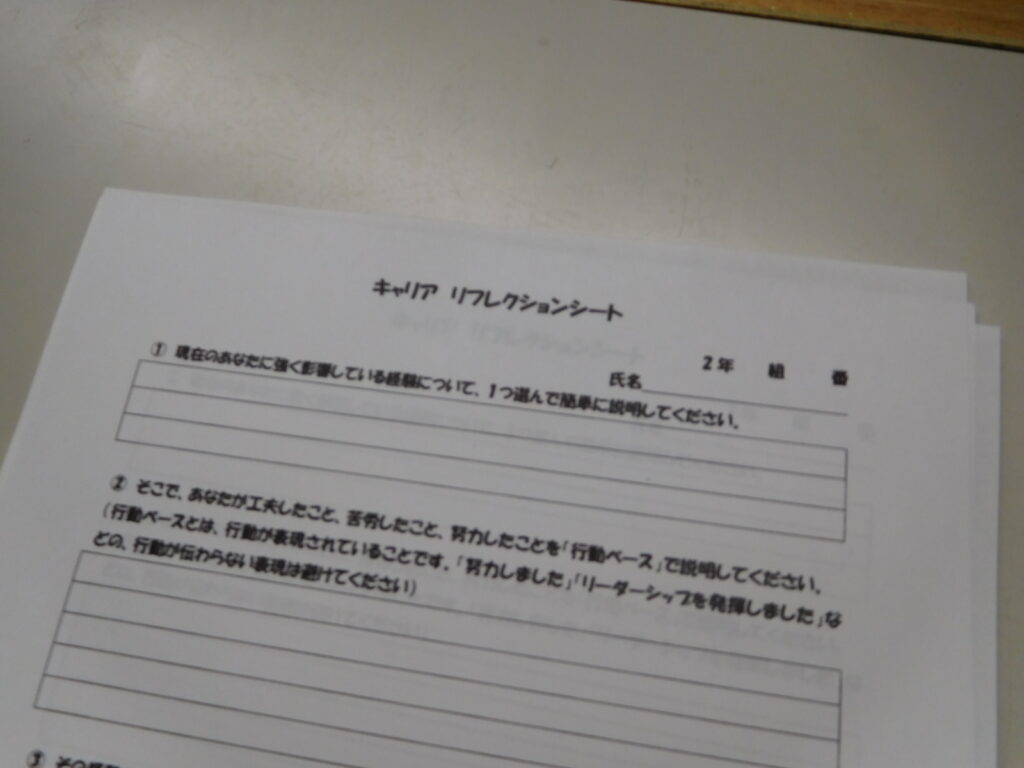 キャリア リフレクションシート
2年 組 番
氏名
① 現在のあなたに強く影響している経験について、1つ選んで簡単に説明してください。
② そこで、あなたが工夫したこと、苦労したこと、努力したことを「行動ベース」で説明してください。
(行動ベースとは、行動が表現されていることです。「努力しました」「リーダーシップを発揮しました」な
どの、行動が伝わらない表現は避けてください)
③ その